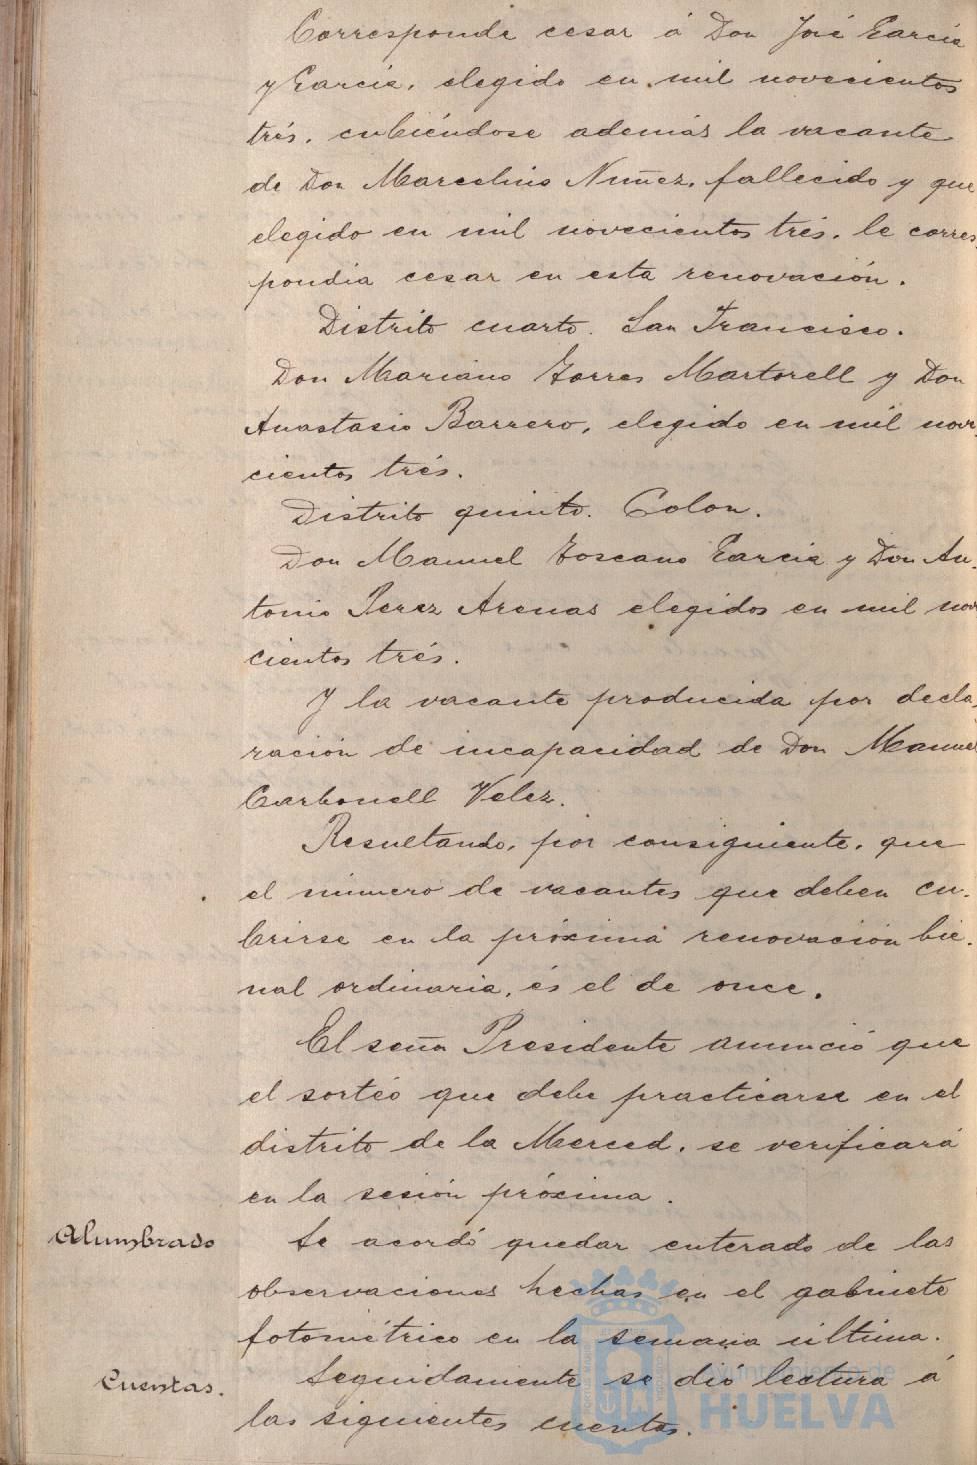 Corresponde cesar á Don José García
y García, elegido en mil novecientos
trés, cubiéndose además la vacante
de Don Marcelino Nuñez, fallecido y que
elegido en mil novecientos trés, le corres-
pondia cesar en esta renovación.
Distrito cuarto. San Francisco.
Don Mariano Torres Martorell y Don
Anastasio Barrero, elegido en mil nove-
cientos trés.
Distrito quinto. Colon.
Don Manuel Toscano García y Don An-
tonio Perez Arenas elegidos en mil nove
cientos trés.
Y la vacante producida por decla-
ración de incapacidad de Don Manuel
Carbonell Velez.
Resultando, por consiguiente, que
el número de vacantes que deben cu-
brirse en la próxima renovación bie-
nal ordinaria, és el de once.
El señor Presidente anunció que
el sortéo que debe practicarse en el
distrito de la Merced, se verificará
en la sesión próxima.
Alumbrado
Se acordó quedar enterado de las
observaciones hechas en el gabinete
fotométrico en la semana última.
Cuentas.
Seguidamente se dió lectura á
las siguientes cuentas.
Ayuntamiento de
HUELVA